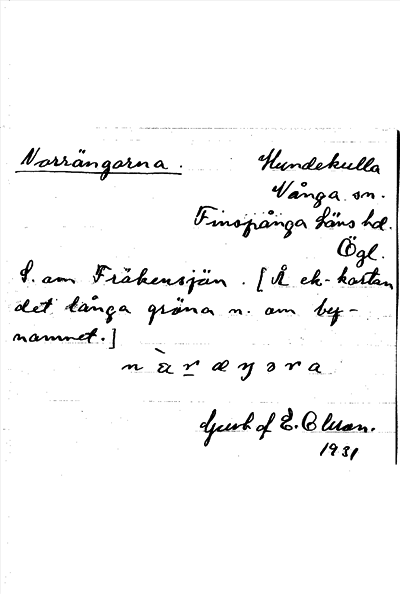 Norrängarna.
Hundekulla
Vånga sn.
Finspånga läns hd.
Ögl.
S. om Fräkensjön. [Å ek-kartan
det långa gröna n. om by-
namnet.]
E. Olson.
1931